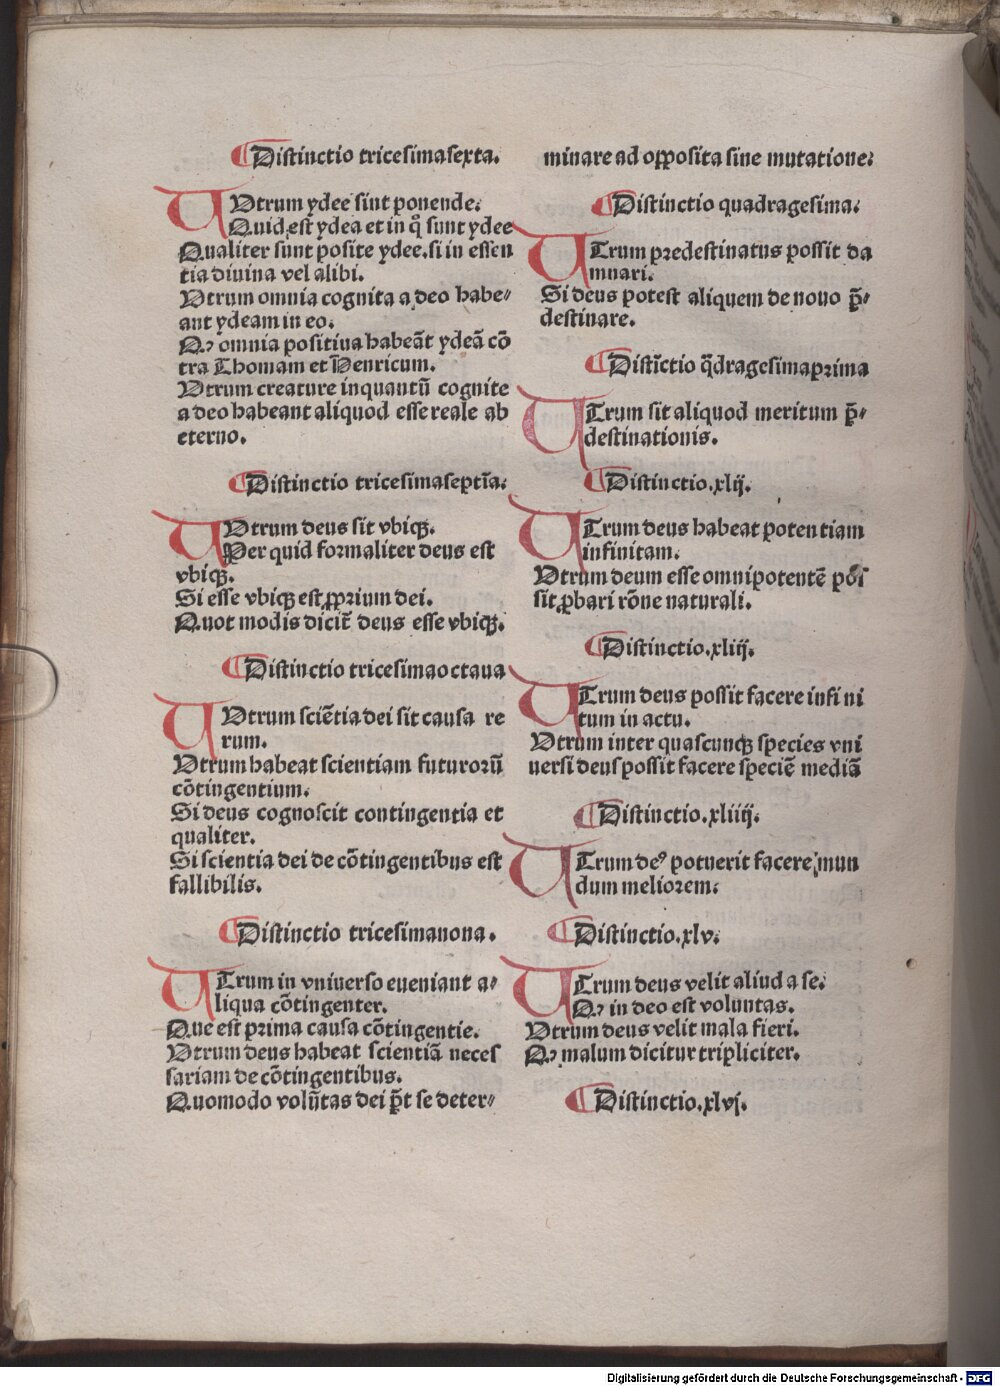 Distinctio tricesimasexta.
UVtrum ydee sint ponende.
Quid est ydea et in q̊ sunt ydee
Qualiter sunt posite ydee.si in essen
tia diuina vel alibi.
Vtrum omnia cognita a deo habe⸗
ant ydeam in eo.
Qꝛ omnia positiua habeāt ydeā cō
tra Thomam et Henricum.
Vtrum creature inquantū cognite
a deo habeant aliquod esse reale ab
eterno.
Distinctio tricesimaseptīa.
UVtrum deus sit vbiqꝫ.
Per quid formaliter deus est
vbiqꝫ.
Si esse vbiqꝫ est ꝓprium dei.
Quot modis dicit̄ deus esse vbiqꝫ.
Distinctio tricesimaoctaua
UVtrum sciētia dei sit causa re
rum.
Vtrum habeat scientiam futurorū
cōtingentium.
Si deus cognoscit contingentia et
qualiter.
Si scientia dei de cōtingentibus est
fallibilis.
Distinctio tricesimanona.
UTrum in vniuerso eueniant a⸗
liqua cōtingenter.
Que est prima causa cōtingentie.
Vtrum deus habeat scientiā neces
sariam de cōtingentibus.
Quomodo volūtas dei p̄t se deter⸗
minare ad opposita sine mutatione.
Distinctio quadragesima.
UTrum predestinatus possit da
mnari.
Si deus potest aliquem de nouo p̄⸗
destinare.
Distīctio q̄dragesimaprima
UTrum sit aliquod meritum p̄⸗
destinationis.
Distinctio.xlij.
UTrum deus habeat potentiam
infinitam.
Vtrum deum esse omnipotentē pos
sit ꝓbari rōne naturali.
Distinctio.xliij.
UTrum deus possit facere infini
tum in actu.
Vtrum inter quascunqꝫ species vni
uersi deus possit facere speciē mediā
Distinctio.xliiij.
UTrum deꝰ potuerit facere mun
dum meliorem.
Distinctio.xlv.
UTrum deus velit aliud a se.
Qꝛ in deo est voluntas.
Vtrum deus velit mala fieri.
Qꝛ malum dicitur tripliciter.
Distinctio.xlvj.
Digitalisierung gefördert durch die Deutsche Forschungsgemeinschaft - DFG